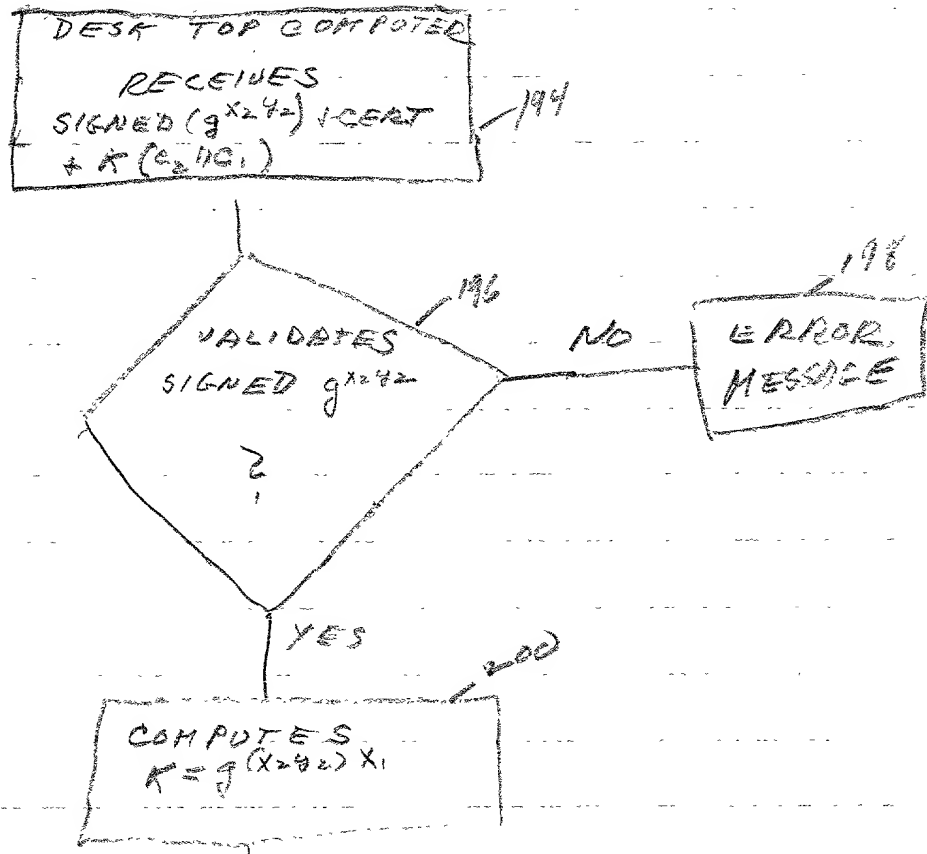 DESK TOP COMPUTER
RECEIVES
SIGNED (g^x2y2) + CERT
+ K (C2 || C1)
194
VALIDATES
SIGNED g^x2y2
?
196
NO
198
ERROR
MESSAGE
YES
200
COMPUTES
K = g^(x2y2) x1